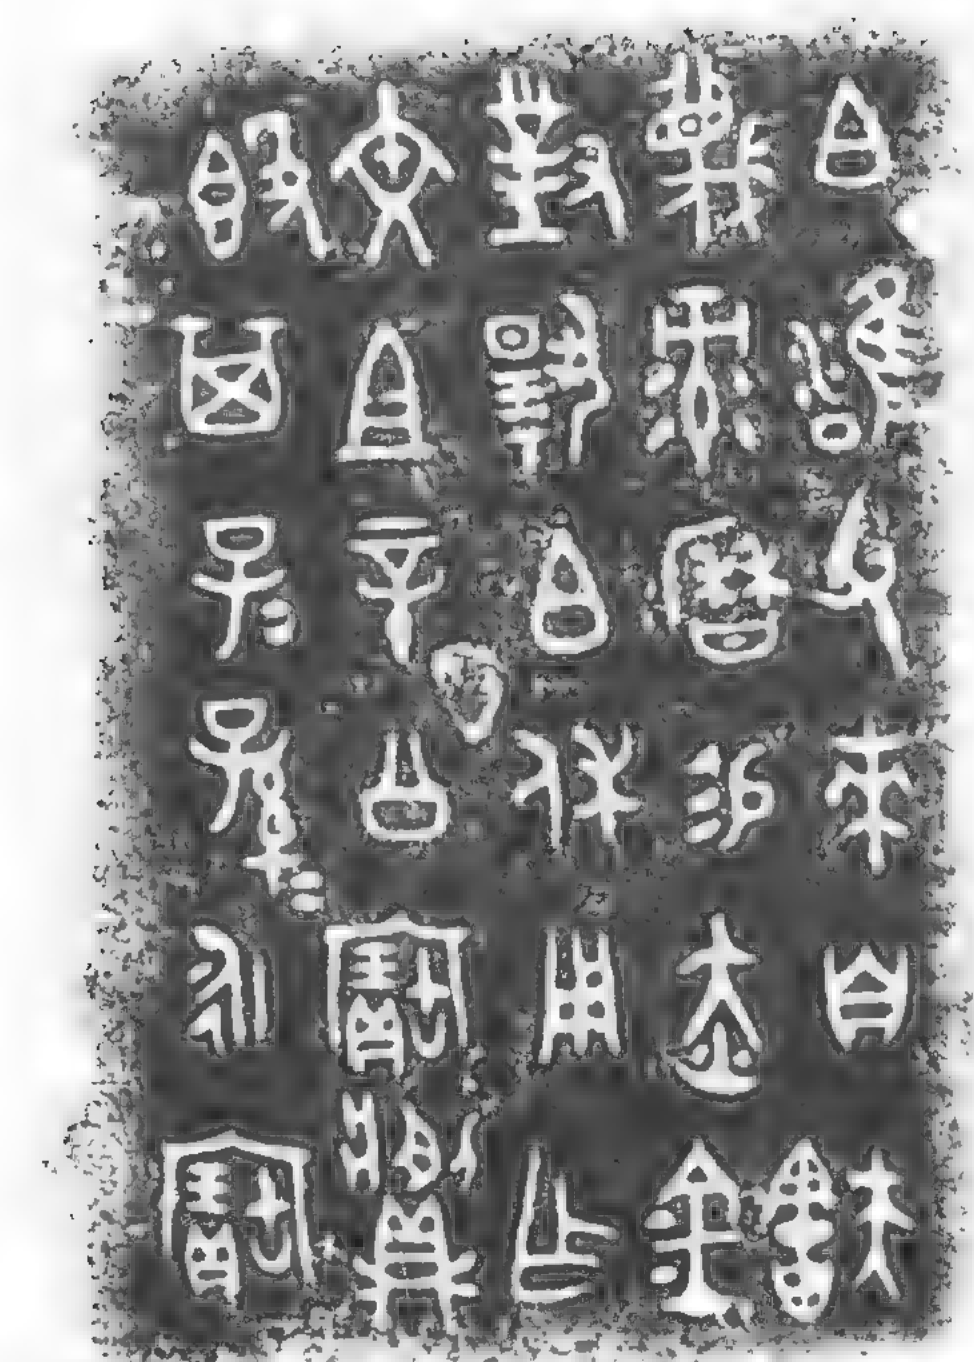 白雝父來自㝬
蔑彔曆易赤金
對𩁹白休用乍
文且辛公寶𩱧
𣪘其子=孫=永寶